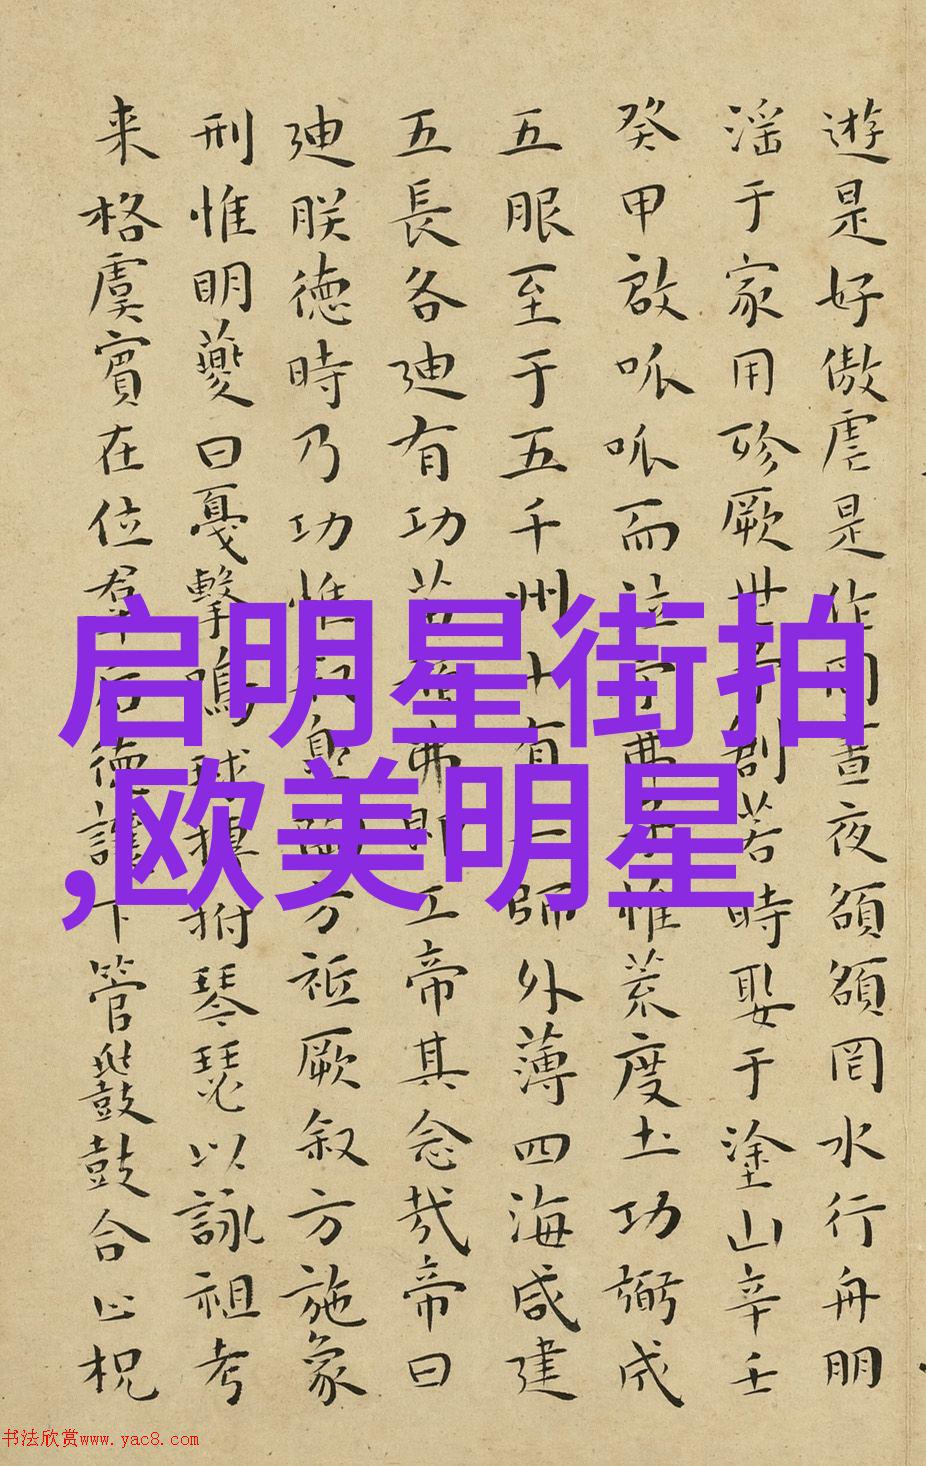 遊是好傲虐是作罔晝夜頟頟罔水行舟朋
淫于家用殄厥世予創若時娶于塗山辛壬
癸甲啟呱呱而泣予弗子惟荒度土功弼成
五服至于五千州十有二師外薄四海咸建
五長各迪有功苗頑弗即工帝其念哉帝曰
迪朕德時乃功惟叙皋陶方祗厥叙方施象
刑惟明夔曰戛擊鳴球搏拊琴瑟以詠祖考
来格虞賓在位羣后德讓下管鼗鼓合止柷
启明星街拍
,欧美明星
书法欣赏www.yac8.com